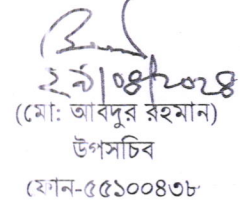 ২৯/০৪/২০২৪
(মো: আবদুর রহমান)
উপসচিব
ফোন-৫৫১০০৪৩৮